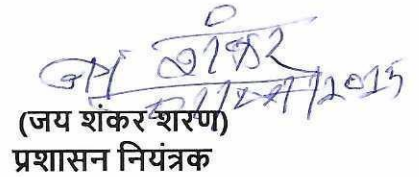 जय शंकर
(जय शंकर शरण)
प्रशासन नियंत्रक